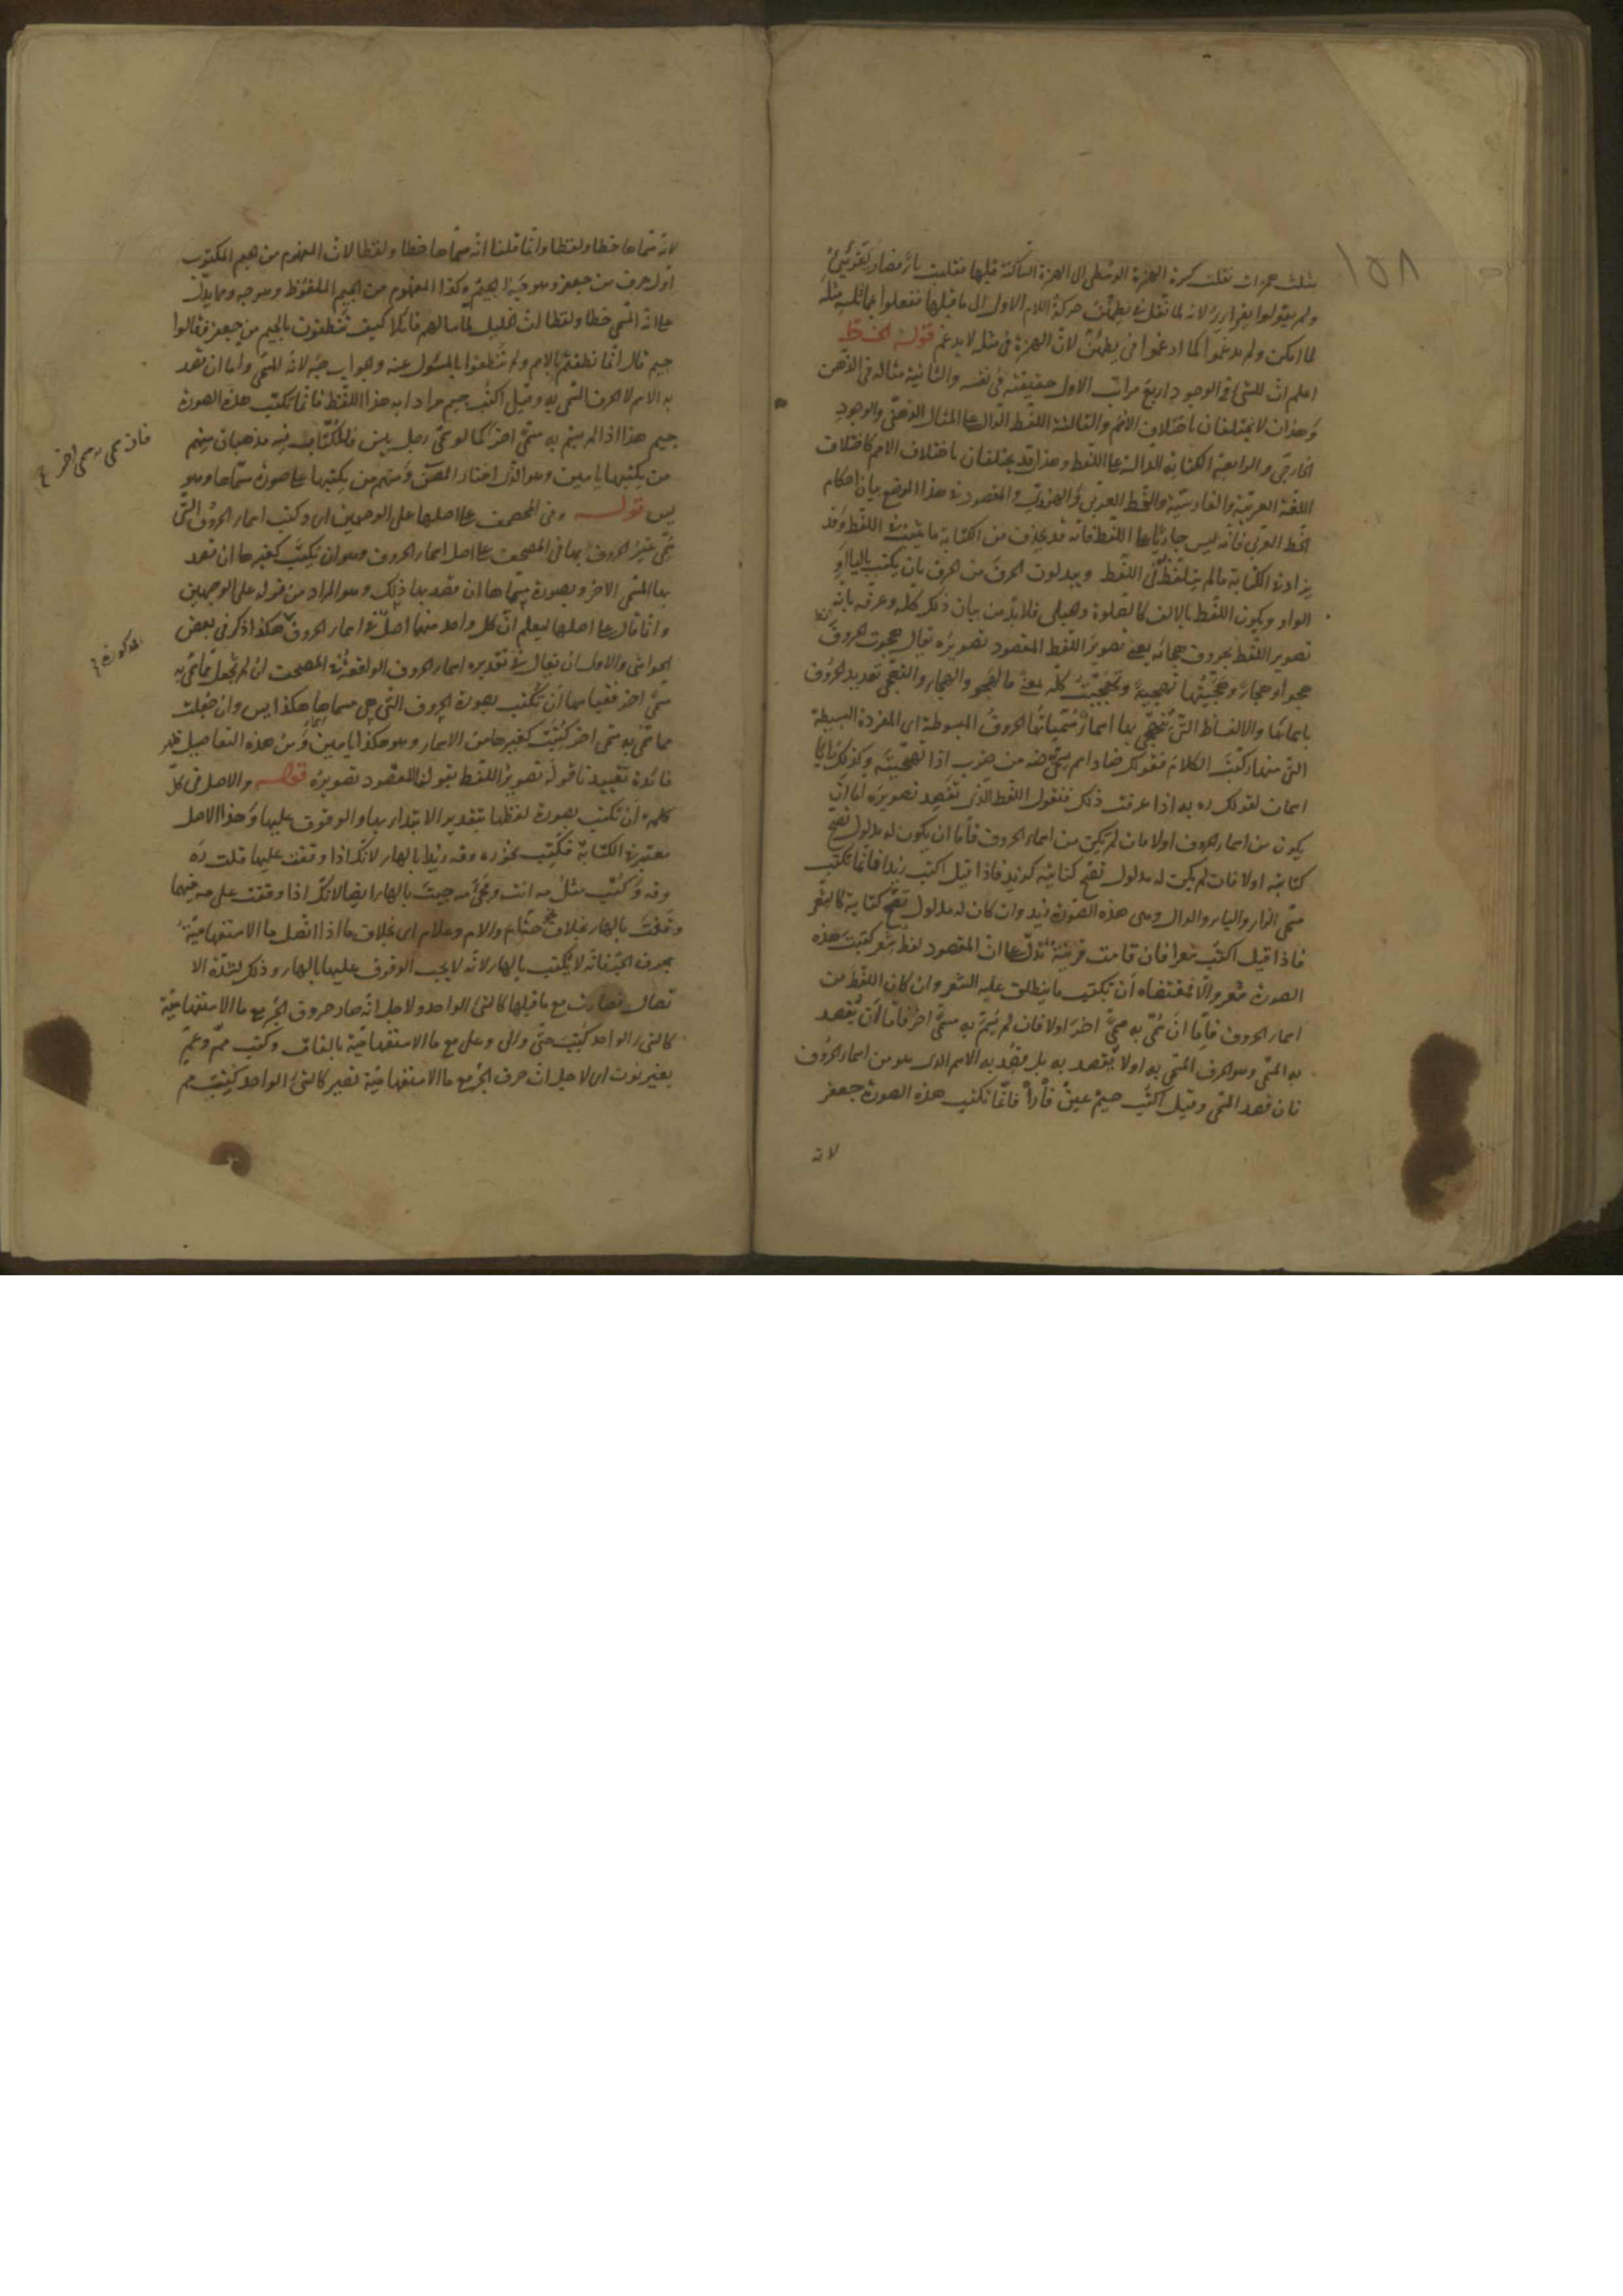 ١٥٨
بثلث همزات نقلت كسرة الهمزة الوسطى الى الهمزة الساكنة قبلها فقلبت ياء فصار يقرئيئ
ولم يقولوا يقرايرر لانه لما نقل في يطمئن حركة اللام الاول الى ما قبلها ففعلوا بما يماثله مثله
لما امكن ولم يدغموا كما ادغموا في يطمئن لان الهمزة في مثله لا يدغم قوله الخط
اعلم ان للشئ في الوجود اربع مراتب الاول حقيقته في نفسه والثانية مثاله في الذهن
وهذان لا يختلفان باختلاف الامم والثالثة اللفظ الدال على المثال الذهني والوجود
الخارجي والرابعة الكتابة الدالة على اللفظ وهذان قد يختلفان باختلاف الامم كاختلاف
اللغة العربية والفارسية والخط العربي والهندي والمقصود في هذا الموضع بيان احكام
الخط العربي فانه ليس جاريا على اللفظ فانه قد يحذف من الكتابة ما يثبت في اللفظ وقد
يزاد في الكتابة ما لم يتلفظ في اللفظ ويبدلون الحرف من الحرف بان يكتب بالياء او
الواو ويكون اللفظ بالالف كالصلوة وحبلى فلا بد من بيان ذلك كله وعرفه بانه
تصوير اللفظ بحروف هجائه يعنى تصوير اللفظ المقصود تصويره يقال هجوت الحروف
هجوا وهجاء وهجيتها تهجية وتهجيت كله بمعنى فالهجو والهجاء والتهجي تعديد الحروف
باسمائها والالفاظ التي يتهجى بها اسماء مسمياتها الحروف المبسوطة اى المفردة البسيطة
التي منها ركبت الكلام فقولك ضاد اسم سمي به ضه من ضرب اذا تهجيته وكذلك را با
اسمان لقولك ره به اذا عرفت ذلك فنقول اللفظ الذي تقصد تصويره اما ان
يكون من اسماء الحروف اولا فان لم يكن من اسماء الحروف فاما ان يكون له مدلول تصح
كتابته اولا فان لم يكن له مدلول تصح كتابته كزيد فاذا قيل اكتب زيدا فانما تكتب
مسمى الزاء والياء والدال وهى هذه الصورة زيد وان كان له مدلول تصح كتابة كالشعر
فاذا قيل اكتب شعرا فان قامت قرينة تدل على ان المقصود لفظ شعر كتبت هذه
الصورة شعر والا فمقتضاه ان تكتب ما ينطلق عليه الشعر وان كان اللفظ من
اسماء الحروف فاما ان سمي به مسمى اخر اولا فان لم يسم به مسمى اخر فاما ان يقصد
به المسمى وهو الحرف المسمى به اولا يقصد به بل يقصد به الاسم الذي هو من اسماء الحروف
فان قصد المسمى وقيل اكتب جيم عين فا را فانما تكتب هذه الصورة جعفر
لانه
لانه مسماها خطا ولفظا وانما قلنا انه مسماها خطا ولفظا لان المفهوم من جيم المكتوب
اول حرف من جعفر وهو جه الجيم وكذا المفهوم من الجيم الملفوظ وهو جه ومما يدل
على انه المسمى خطا ولفظا ان الخليل لما سالهم قائلا كيف تنطقون بالجيم من جعفر فقالوا
جيم قال انما نطقتم بالاسم ولم تنطقوا بالمسئول عنه والجواب جه لانه المسمى واما ان قصد
به الاسم لا الحرف المسمى به وقيل اكتب جيم مرادا به هذا اللفظ فانما تكتب هذه الصورة
جيم هذا اذا لم يسم به مسمى اخر كما لو سمى رجل بيس فللكتاب فيه مذهبان منهم
فان سمى به مسمى اخر
من يكتبها ياسين وهو الذي اختار المصنف ومنهم من يكتبها على صورة مسماها وهو
يس قوله وفى المصحف على اصلها على الوجهين اى وكتب اسماء الحروف التي
سمى غير الحروف بها في المصحف على اصل اسماء الحروف وهو ان يكتب كغيرها ان قصد
بها المسمى الاخر وبصورة مسماها ان قصد بها ذلك وهو المراد من قوله على الوجهين
وانما قال على اصلها ليعلم ان كل واحد منهما اصل في اسماء الحروف هكذا ذكر في بعض
المذكورة
الحواشى والاولى ان يقال في تقديره اسماء الحروف الواقعة في المصحف ان لم تجعل مما سمى به
مسمى اخر فقياسها ان تكتب بصورة الحروف التي هي مسماها هكذا يس وان جعلت
مما سمى به مسمى اخر كتبت كغيرها من الاسماء وهو هكذا ياسين ومن هذه التفاصيل ظهر
فائدة تقييدنا قوله تصوير اللفظ بقولنا المقصود تصويره قوله والاصل في كل
كلمة ان تكتب بصورة لفظها بتقدير الابتداء بها والوقوف عليها وهذا الاصل
معتبر في الكتابة فكتب نحو ره وقه زيدا بالهاء لانك اذا وقفت عليها قلت ره
وقه وكتب مثل مه انت ومجئ مه جيت بالهاء ايضا لانك اذا وقفت على مه فيهما
وقفت بالهاء بخلاف نحو حتام والام وعلام اى بخلاف ما اذا اتصل ما الاستفهامية
بحرف الجر فانه لا يكتب بالهاء لانه لا يجب الوقوف عليها بالهاء وذلك لشدة الا
تصال فصارت مع ما قبلها كالشئ الواحد ولاجل انه صار حروف الجر مع ما الاستفهامية
كالشئ الواحد كتبت حتى والى وعلى مع ما الاستفهامية بالفات وكتب مم وعم
بغير نون اى لاجل ان حرف الجر مع ما الاستفهامية تصير كالشئ الواحد كتبت مم